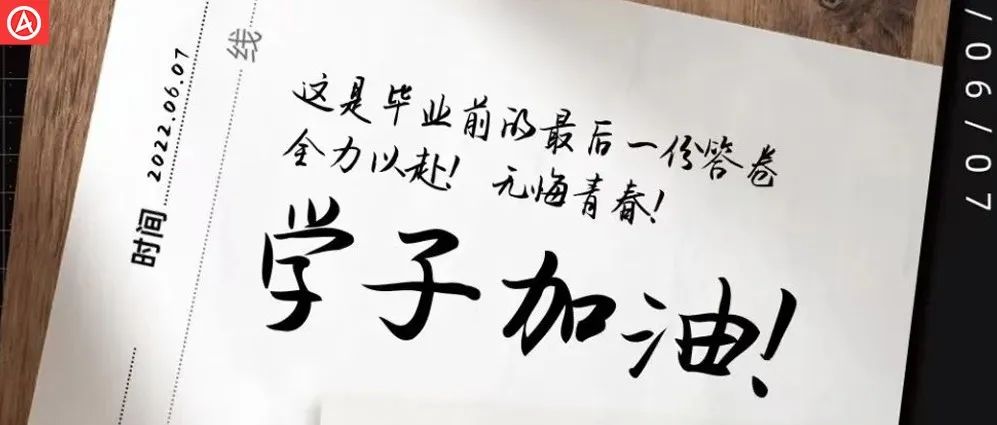 线
时间 2022.06.07
这是毕业前的最后一份答卷
全力以赴！ 无悔青春！
学子加油！
/06/07